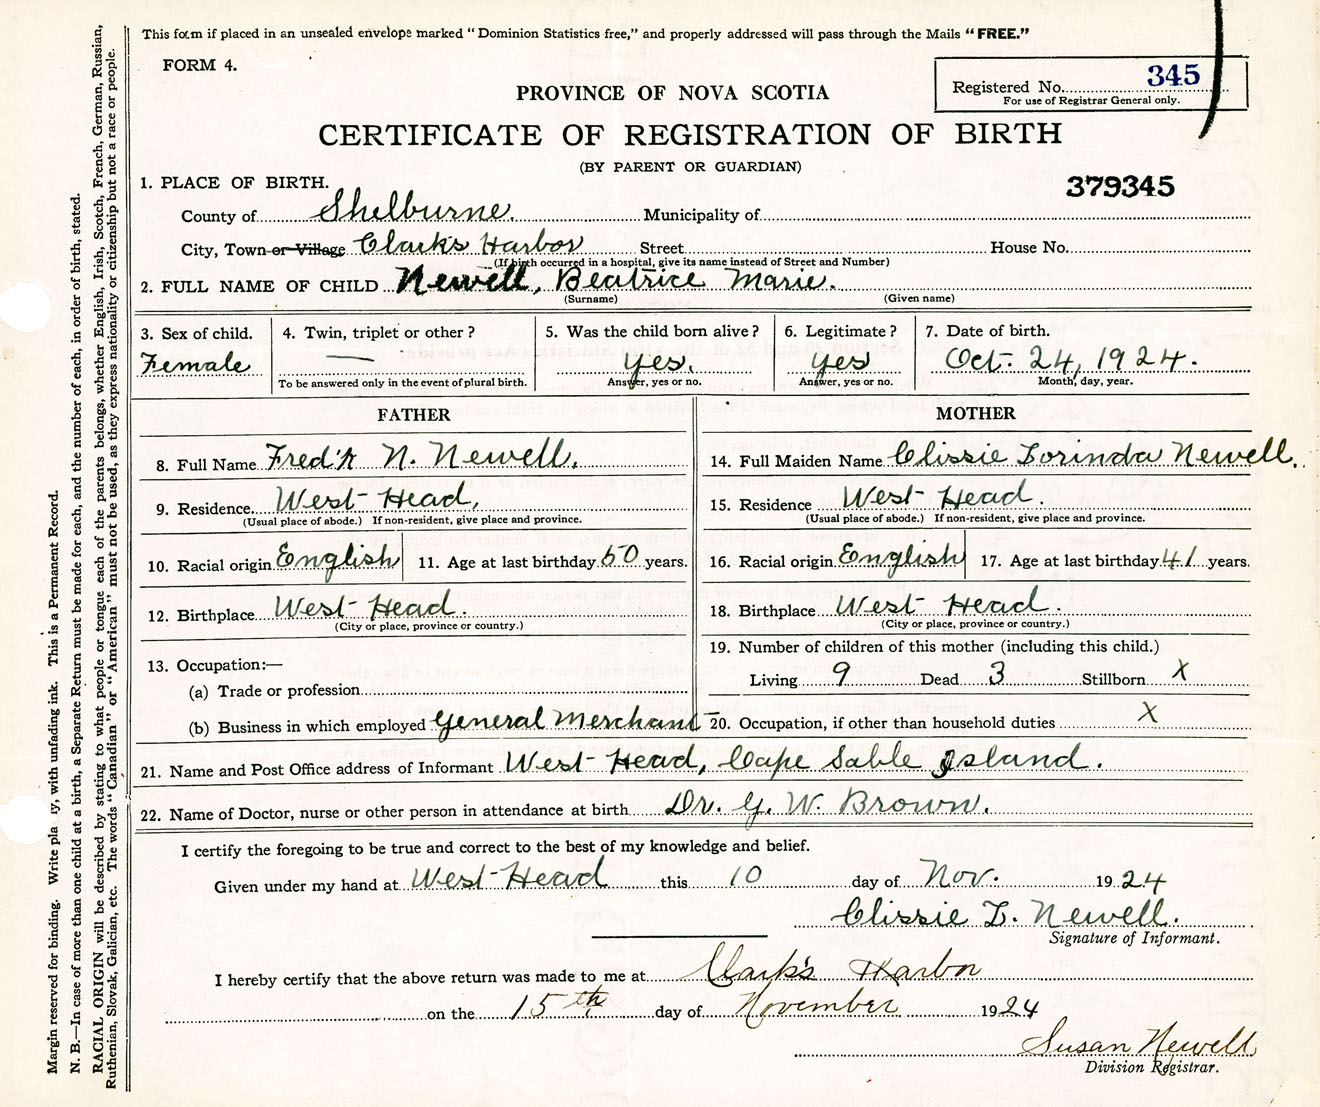 This form if placed in an unsealed envelope marked "Dominion Statistics free," and properly addressed will pass through the Mails "FREE."
FORM 4.
Registered No. 345
For use of Registrar General only.
PROVINCE OF NOVA SCOTIA
CERTIFICATE OF REGISTRATION OF BIRTH
(BY PARENT OR GUARDIAN)
379345
1. PLACE OF BIRTH.
County of Shelburne. Municipality of
City, Town or Village Clark's Harbor Street House No.
(If birth occurred in a hospital, give its name instead of Street and Number)
2. FULL NAME OF CHILD Newell, Beatrice Marie.
(Surname) (Given name)
3. Sex of child. 4. Twin, triplet or other? 5. Was the child born alive? 6. Legitimate? 7. Date of birth.
Female — yes. yes Oct. 24, 1924.
To be answered only in the event of plural birth. Answer, yes or no. Answer, yes or no. Month, day, year.
FATHER
8. Full Name Fred'k N. Newell.
9. Residence West Head,
(Usual place of abode.) If non-resident, give place and province.
10. Racial origin English 11. Age at last birthday 50 years.
12. Birthplace West Head.
(City or place, province or country.)
13. Occupation:—
(a) Trade or profession
(b) Business in which employed General Merchant
MOTHER
14. Full Maiden Name Clissie Lorinda Newell.
15. Residence West Head.
(Usual place of abode.) If non-resident, give place and province.
16. Racial origin English 17. Age at last birthday 41 years.
18. Birthplace West Head.
(City or place, province or country.)
19. Number of children of this mother (including this child.)
Living 9 Dead 3 Stillborn X
20. Occupation, if other than household duties X
21. Name and Post Office address of Informant West Head, Cape Sable Island.
22. Name of Doctor, nurse or other person in attendance at birth Dr. G. W. Brown.
I certify the foregoing to be true and correct to the best of my knowledge and belief.
Given under my hand at West Head this 10 day of Nov. 1924
Clissie L. Newell.
Signature of Informant.
I hereby certify that the above return was made to me at Clark's Harbor
on the 15th day of November 1924
Susan Newell
Division Registrar.
Margin reserved for binding. Write pla ly, with unfading ink. This is a Permanent Record.
N. B.—In case of more than one child at a birth, a Separate Return must be made for each, and the number of each, in order of birth, stated.
RACIAL ORIGIN will be described by stating to what people or tongue each of the parents belongs, whether English, Irish, Scotch, French, German, Russian,
Ruthenian, Slovak, Galician, etc. The words "Canadian" or "American" must not be used, as they express nationality or citizenship but not a race or people.